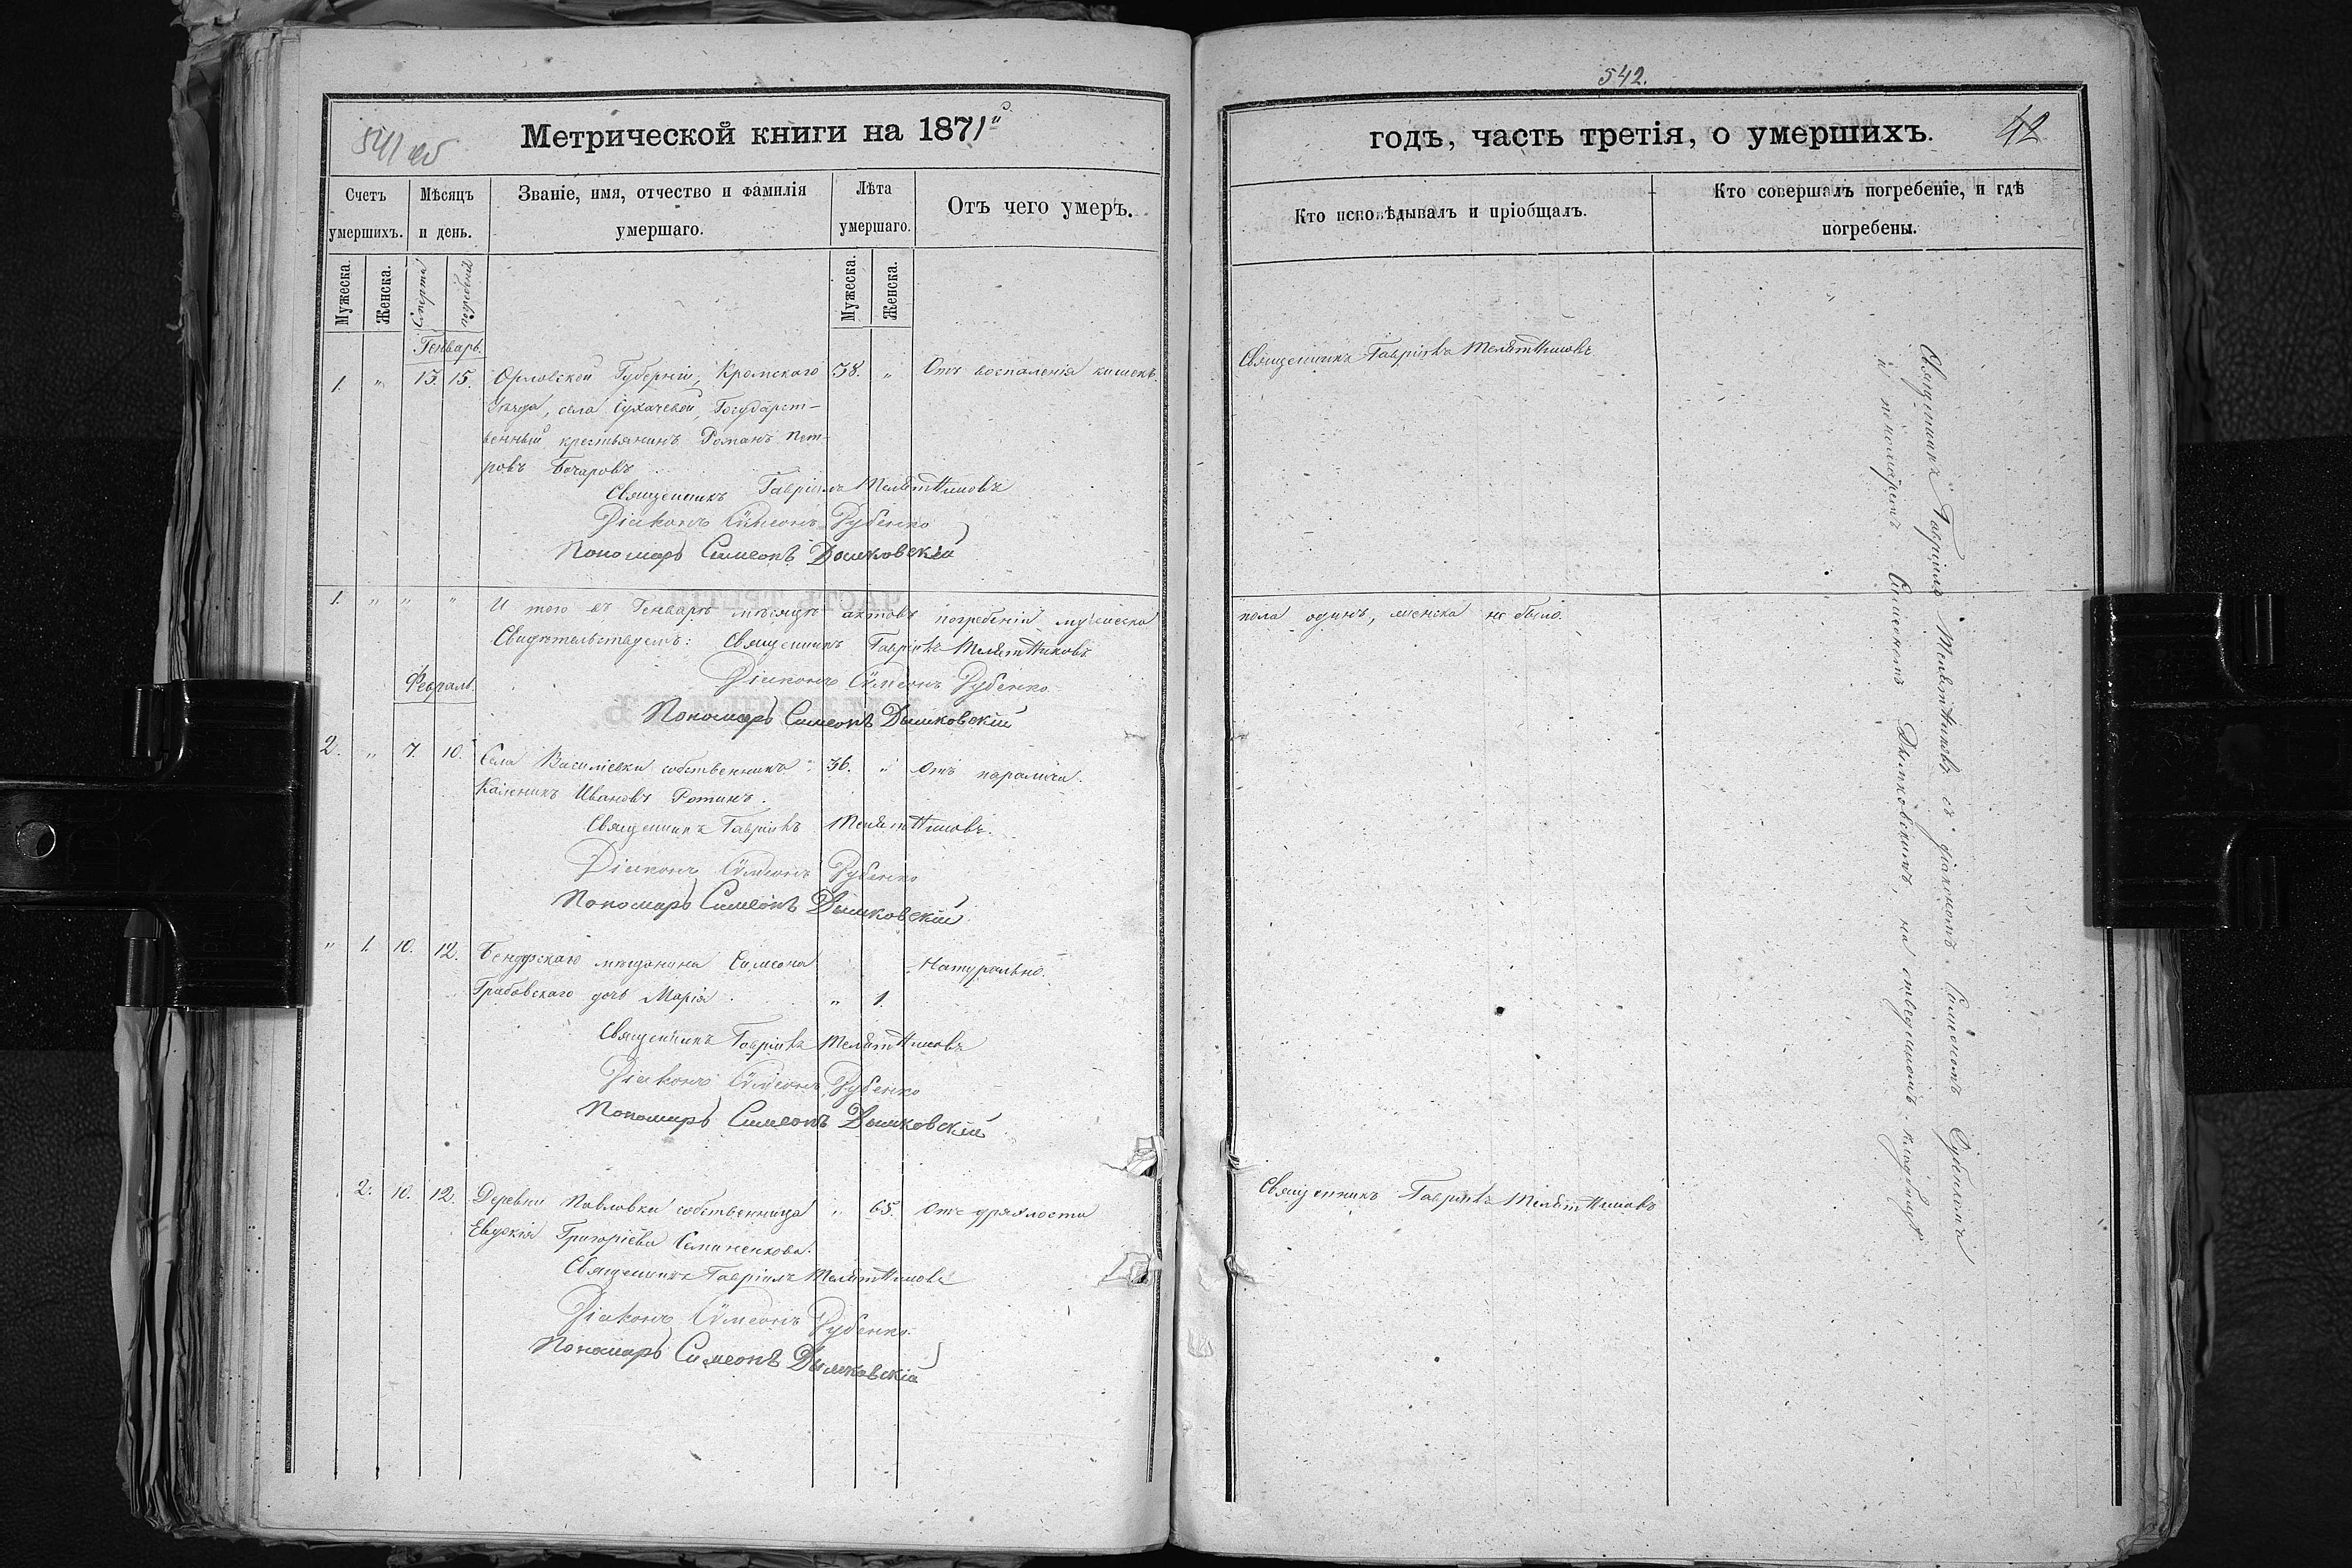 541 об
Метрической книги на 1871й
Счетъ умершихъ.
Мѣсяцъ и день.
Званіе, имя, отчество и фамилія умершаго.
Лѣта умершаго.
Отъ чего умеръ.
Мужеска.
Женска.
Смерти
погребенія
Мужеска.
Женска.
Генварь.
1. " 13. 15. Орловской Губерніи, Кромскаго 38. " Отъ воспаленія кишекъ.
Уѣзда, села Сухачевой, Государст-
венный крестьянинъ Романъ Пет-
ровъ Бочаровъ
Священникъ Гавріилъ
Діаконъ Сѵмеонъ Рубенко
Пономарь Симеонъ Дымковскій
1. " " " И того въ Генварѣ мѣсяцѣ актовъ погребенія мужеска
Свидѣтельствуемъ: Священникъ Гавріилъ
Діаконъ Сѵмеонъ Рубенко
Февраль.
Пономарь Симеонъ Дымковскій
2. " 7. 10. Села Василіевки собственникъ 36. " Отъ паралича.
Каленикъ Ивановъ Ротинъ.
Священникъ Гавріилъ
Діаконъ Сѵмеонъ Рубенко
Пономарь Симеонъ Дымковскій
" 1. 10. 12. Бендерскаго мѣщанина Симеона Натурально.
Грабовскаго дочь Марія. " 1.
Священникъ Гавріилъ
Діаконъ Сѵмеонъ Рубенко
Пономарь Симеонъ Дымковскій
2. 10. 12. Деревни Павловки собственница " 65. Отъ дряхлости
Евдокія Григоріева Семиненкова.
Священникъ Гавріилъ
Діаконъ Сѵмеонъ Рубенко
Пономарь Симеонъ Дымковскій
542.
годъ, часть третія, о умершихъ.
42
Кто исповѣдывалъ и пріобщалъ.
Кто совершалъ погребеніе, и гдѣ погребены.
Священникъ Гавріилъ
пола одинъ, женска не было.
Священникъ Гавріилъ
Священникъ Гавріилъ съ діакономъ Симеономъ Рубенкомъ
и пономаремъ Симеономъ Дымковскимъ, на отведенномъ кладбищѣ